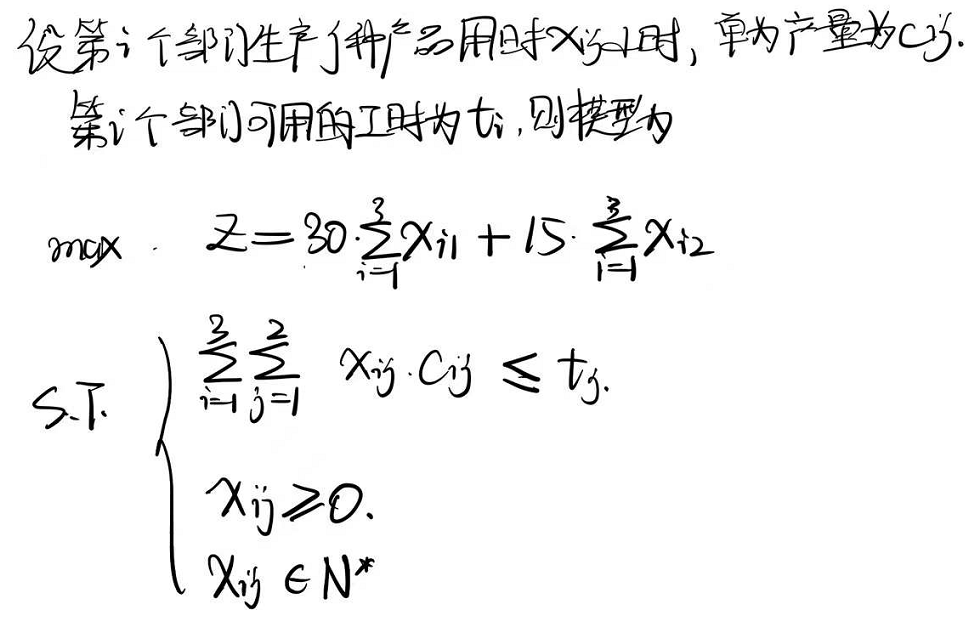 设第i个部门生产j种产品用时xij小时, 单为产量为cij.
第i个部门可用的工时为ti, 则模型为
max. Z=30·∑_{i=1}^{3}x_{i1}+15·∑_{i=1}^{3}x_{i2}
S.T. { ∑_{i=1}^{3}∑_{j=1}^{2} x_{ij}·c_{ij} ≤ t_j.
x_{ij} ⩾ 0.
x_{ij} ∈ N*